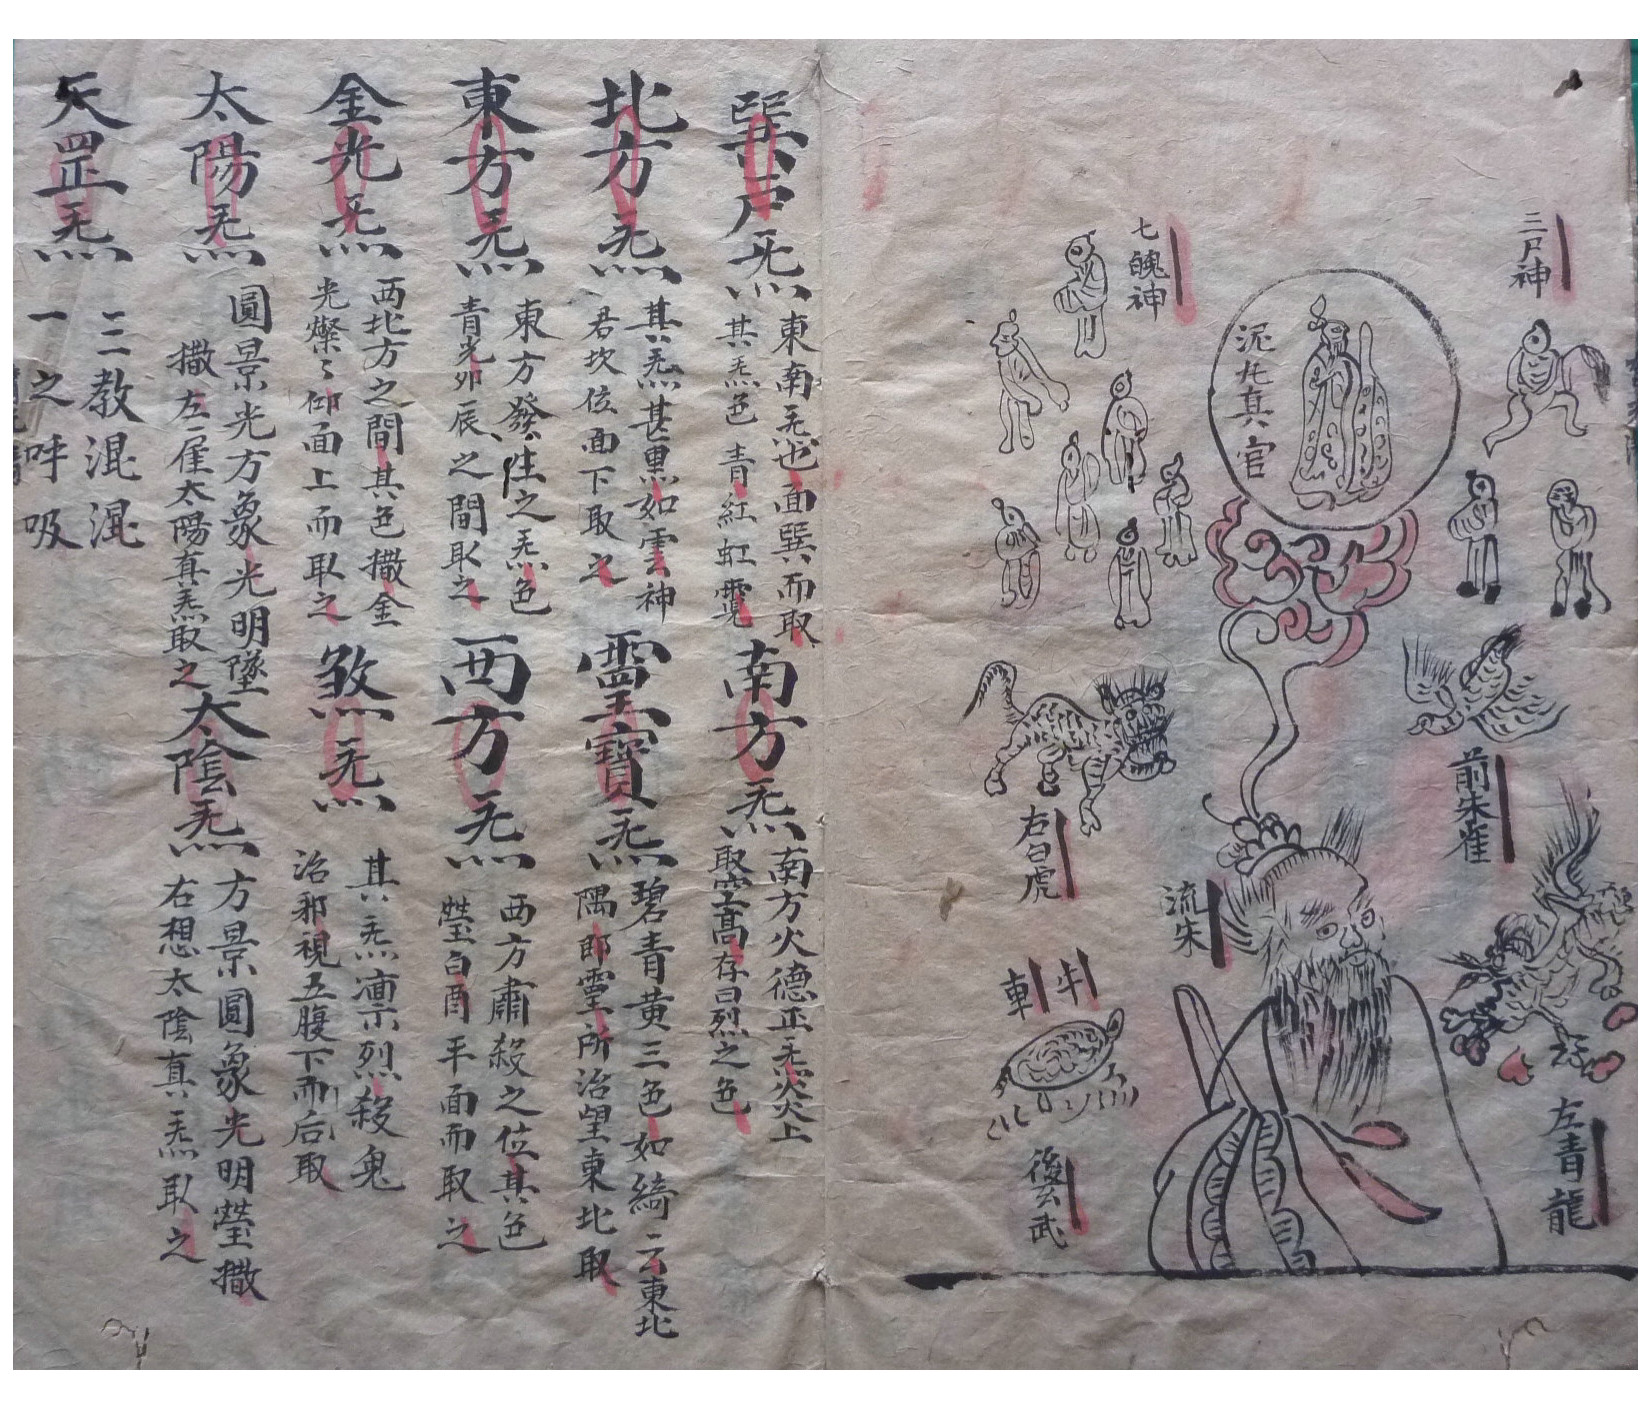 三尸神
七魄神
泥丸真官
前朱雀
右白虎
流朱
左青龍
牛
車
後玄武
巽戶炁
東南炁也面巽而取
其炁色青紅虹霓
南方炁
南方火德正炁炎上
取空高存曰烈之色
北方炁
其炁甚黑如雲神
君坎位面下取之
靈寶炁
碧青黄三色如綺云東北
隅即靈所治望東北取
東方炁
東方發生之炁色
青光卯辰之間取之
西方炁
西方肅殺之位其色
瑩白酉平面而取之
金光炁
西北方之間其色撒金
光燦々仰面上而取之
煞炁
其炁凛烈殺鬼
治邪視五腹下而后取
太陽炁
圓景光方象光明墜
撒左雇太陽真炁取之
太陰炁
方景圓象光明瑩撒
右想太陰真炁取之
天罡炁
三教混混
一之呼吸